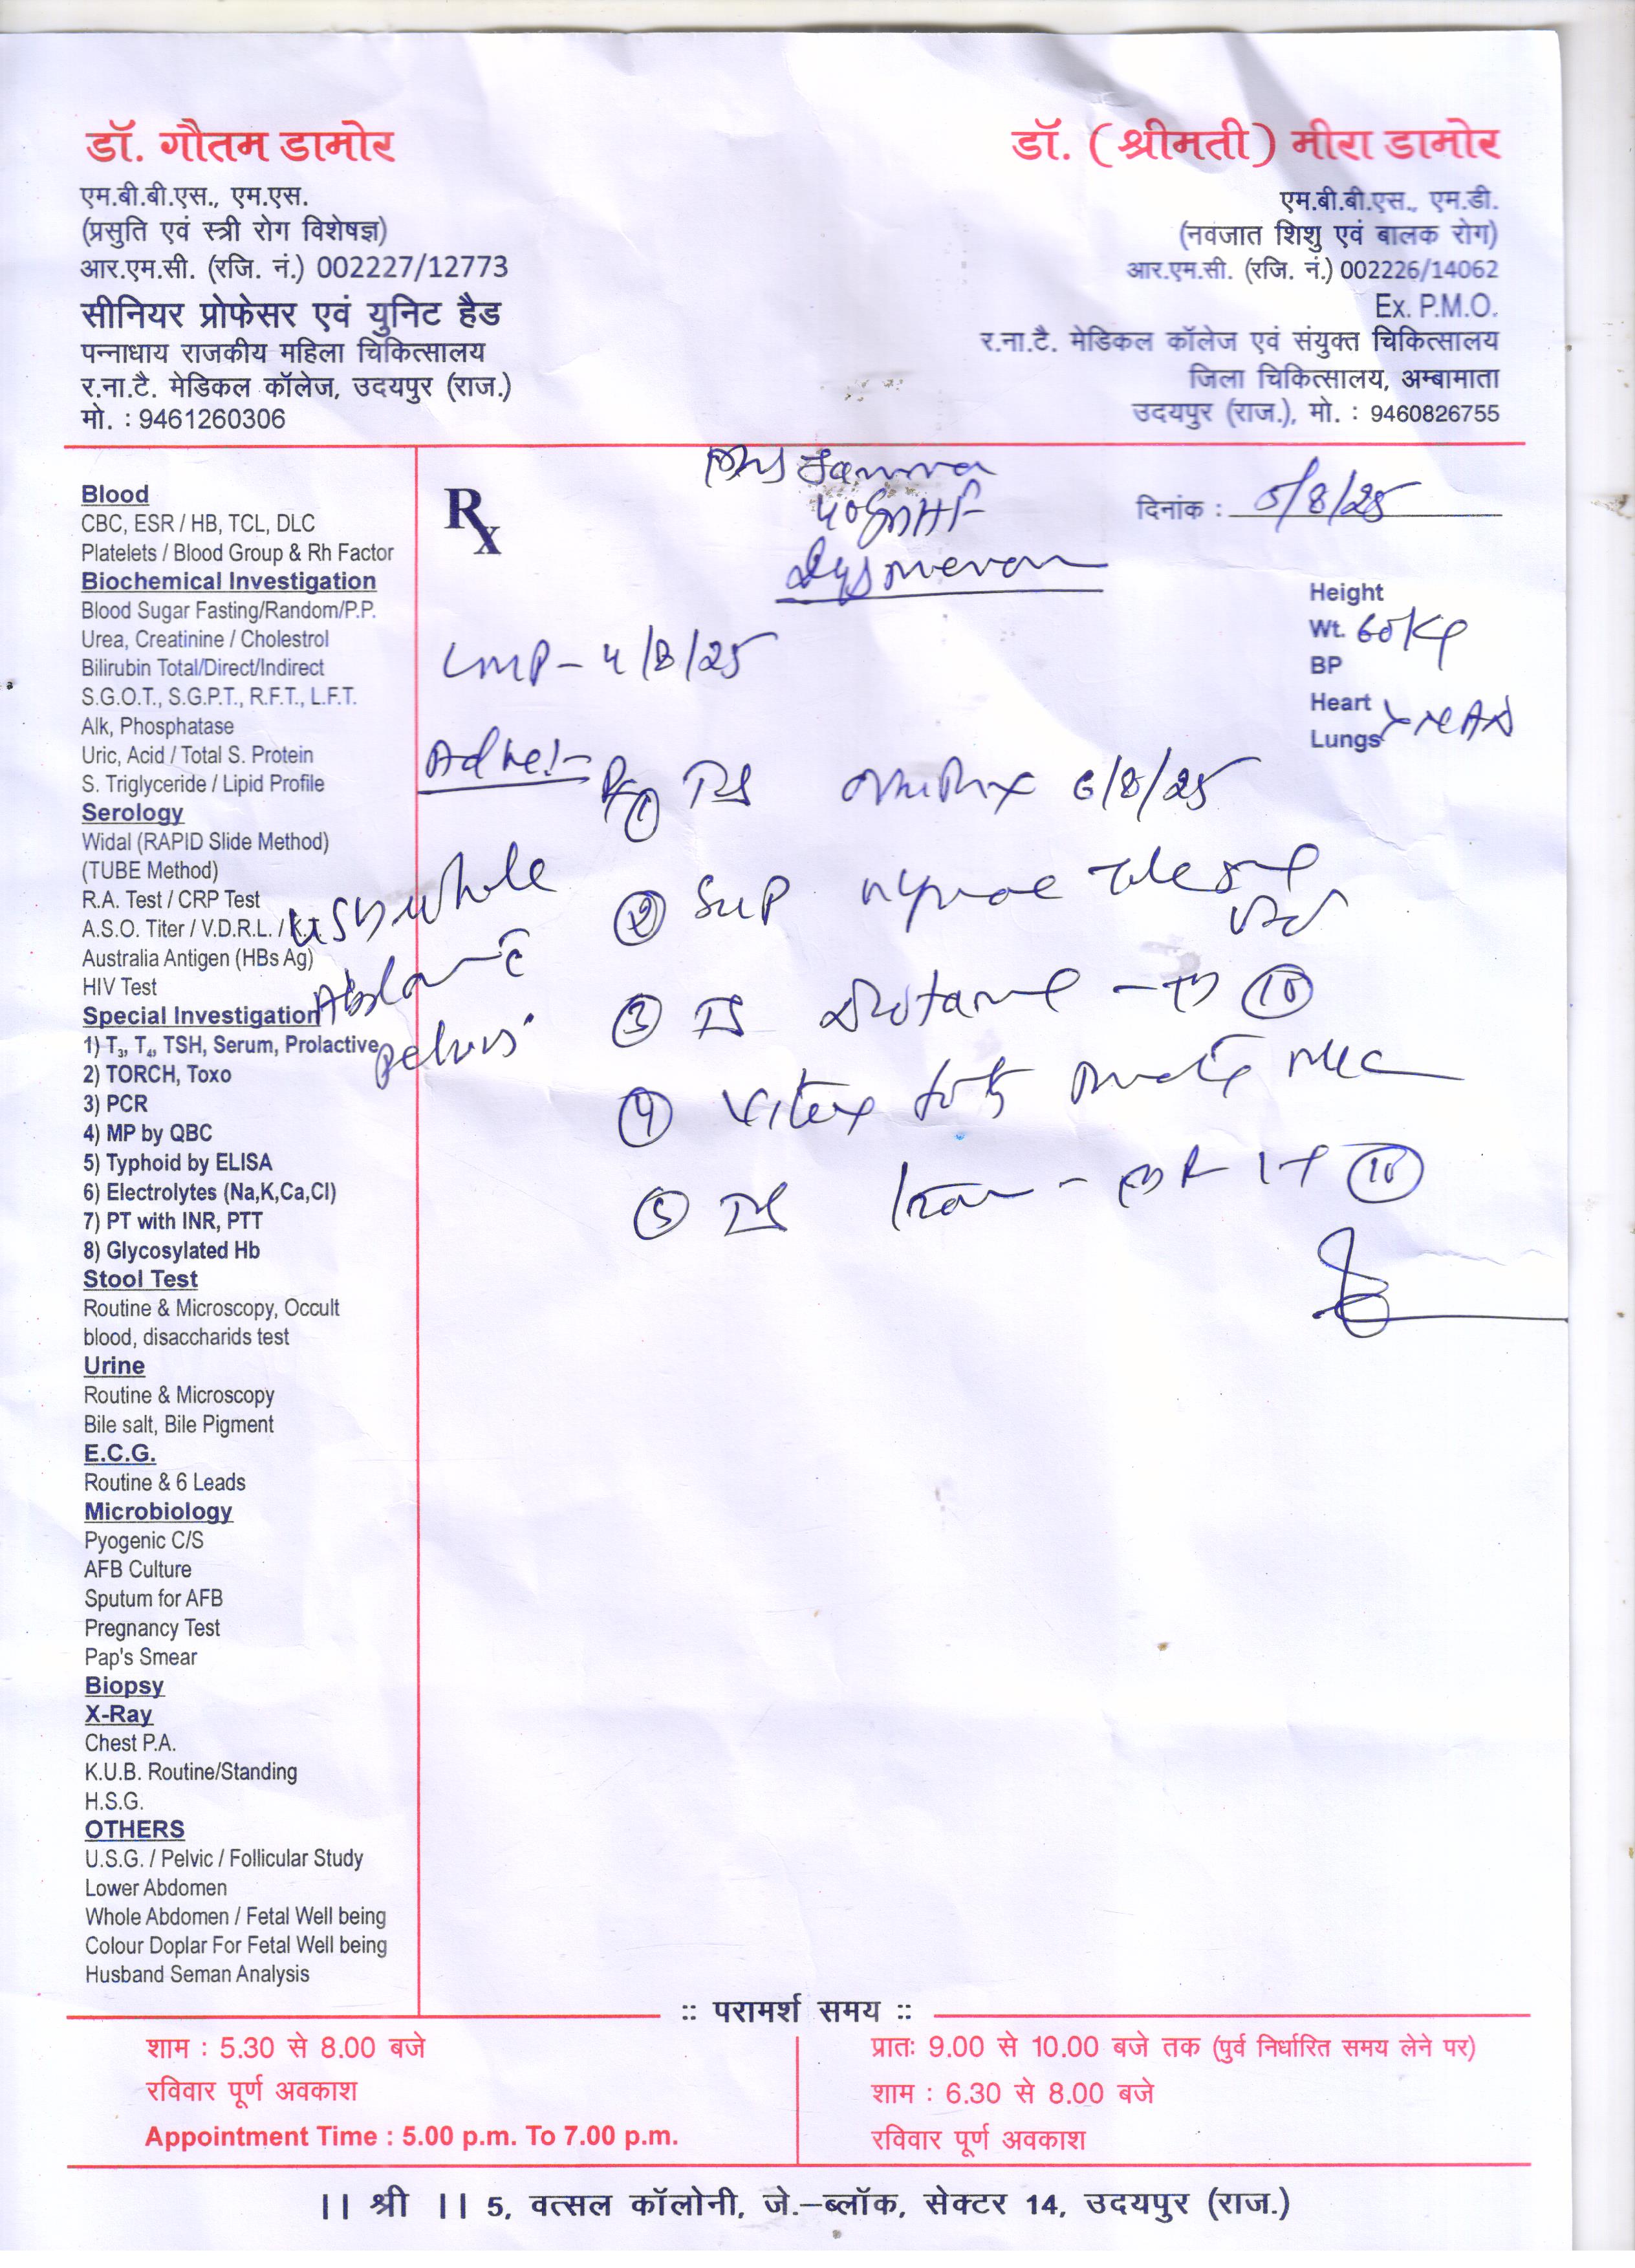 डॉ. गौतम डामोर
एम.बी.बी.एस., एम.एस.
(प्रसुति एवं स्त्री रोग विशेषज्ञ)
आर.एम.सी. (रजि. नं.) 002227/12773
सीनियर प्रोफेसर एवं युनिट हैड
पन्नाधाय राजकीय महिला चिकित्सालय
र.ना.टै. मेडिकल कॉलेज, उदयपुर (राज.)
मो. : 9461260306
डॉ. (श्रीमती) मीरा डामोर
एम.बी.बी.एस., एम.डी.
(नवजात शिशु एवं बालक रोग)
आर.एम.सी. (रजि. नं.) 002226/14062
Ex. P.M.O.
र.ना.टै. मेडिकल कॉलेज एवं संयुक्त चिकित्सालय
जिला चिकित्सालय, अम्बामाता
उदयपुर (राज.), मो. : 9460826755
Blood
CBC, ESR / HB, TCL, DLC
Platelets / Blood Group & Rh Factor
Biochemical Investigation
Blood Sugar Fasting/Random/P.P.
Urea, Creatinine / Cholestrol
Bilirubin Total/Direct/Indirect
S.G.O.T., S.G.P.T., R.F.T., L.F.T.
Alk, Phosphatase
Uric, Acid / Total S. Protein
S. Triglyceride / Lipid Profile
Serology
Widal (RAPID Slide Method)
(TUBE Method)
R.A. Test / CRP Test
A.S.O. Titer / V.D.R.L. /
Australia Antigen (HBs Ag)
HIV Test
Special Investigation
1) T3, T4, TSH, Serum, Prolactive
2) TORCH, Toxo
3) PCR
4) MP by QBC
5) Typhoid by ELISA
6) Electrolytes (Na,K,Ca,Cl)
7) PT with INR, PTT
8) Glycosylated Hb
Stool Test
Routine & Microscopy, Occult
blood, disaccharids test
Urine
Routine & Microscopy
Bile salt, Bile Pigment
E.C.G.
Routine & 6 Leads
Microbiology
Pyogenic C/S
AFB Culture
Sputum for AFB
Pregnancy Test
Pap's Smear
Biopsy
X-Ray
Chest P.A.
K.U.B. Routine/Standing
H.S.G.
OTHERS
U.S.G. / Pelvic / Follicular Study
Lower Abdomen
Whole Abdomen / Fetal Well being
Colour Doplar For Fetal Well being
Husband Seman Analysis
Rx
दिनांक : 5/8/25
Height
Wt. 60 Kg
BP
Heart
Lungs NAD
LMP - 4/8/25
Adv :-
USG whole
pelvis
① 6/8/25
②
③ ⑩
④
⑤ ⑩
:: परामर्श समय ::
शाम : 5.30 से 8.00 बजे
रविवार पूर्ण अवकाश
Appointment Time : 5.00 p.m. To 7.00 p.m.
प्रातः 9.00 से 10.00 बजे तक (पुर्व निर्धारित समय लेने पर)
शाम : 6.30 से 8.00 बजे
रविवार पूर्ण अवकाश
|| श्री || 5, वत्सल कॉलोनी, जे.-ब्लॉक, सेक्टर 14, उदयपुर (राज.)